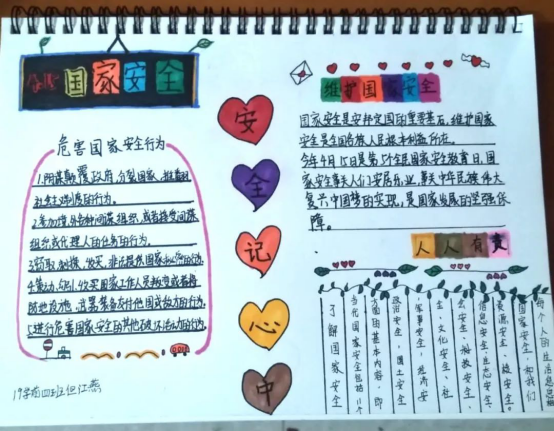 国家安全
危害国家安全行为
1.阴谋颠覆政府,分裂国家,推翻
社会主义制度的行为。
2.参加境外各种间谍组织,或者接受间谍
组织或代理人的任务的行为。
3.窃取、刺探、收买、非法提供国家秘密的行为
4.策动、勾引、收买国家工作人员叛变或者将
防地设施、武器装备交付他国或敌方的行为
5.进行危害国家安全的其他破坏活动的行为。
19学前四班但江燕
安
全
记
心
中
维护国家安全
国家安全是安邦定国的重要基石,维护国家
安全是全国各族人民根本利益所在。
今年4月15日是第5个全民国家安全教育日,国
家安全事关人们安居乐业,事关中华民族伟大
复兴中国梦的实现,是国家发展的坚强保
障。
人人有责
每个人的生活息息相
国家安全,和我们
资源安全、核安全。
信息安全、生态安全、
全、科技安全、
全、文化安全、社
军事安全、经济安
政治安全、国土安全
方面的基本内容,即
当代国家安全包括11个
了解国家安全